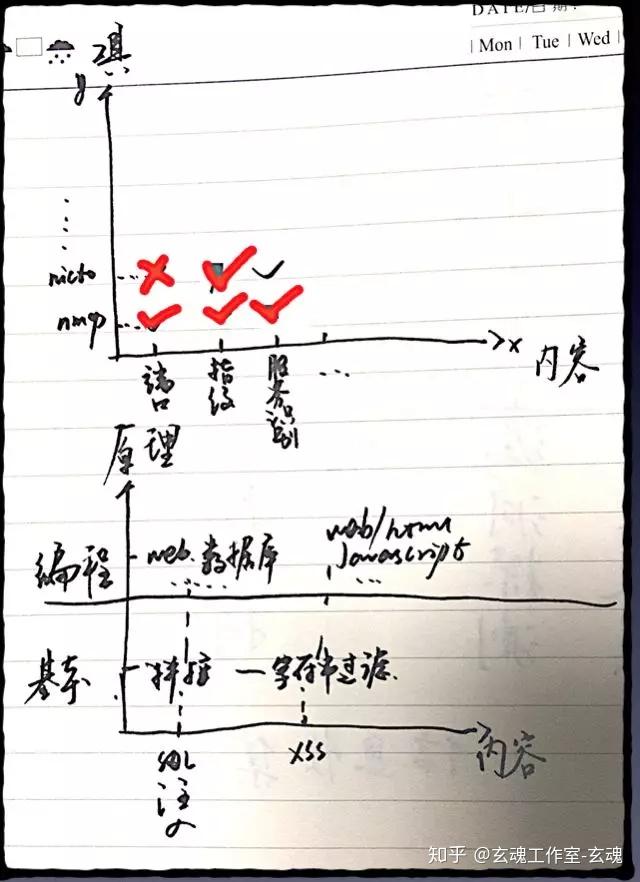 DATE/日期:
| Mon | Tue | Wed |
工具
y
nicto
nmap
x
内容
端口
指纹
服务识别
...
原理
编程
web.数据库
web/html
Javascript
...
基本
拼接
字符串过滤.
SQL
注入
XSS
内容
知乎 @玄魂工作室-玄魂